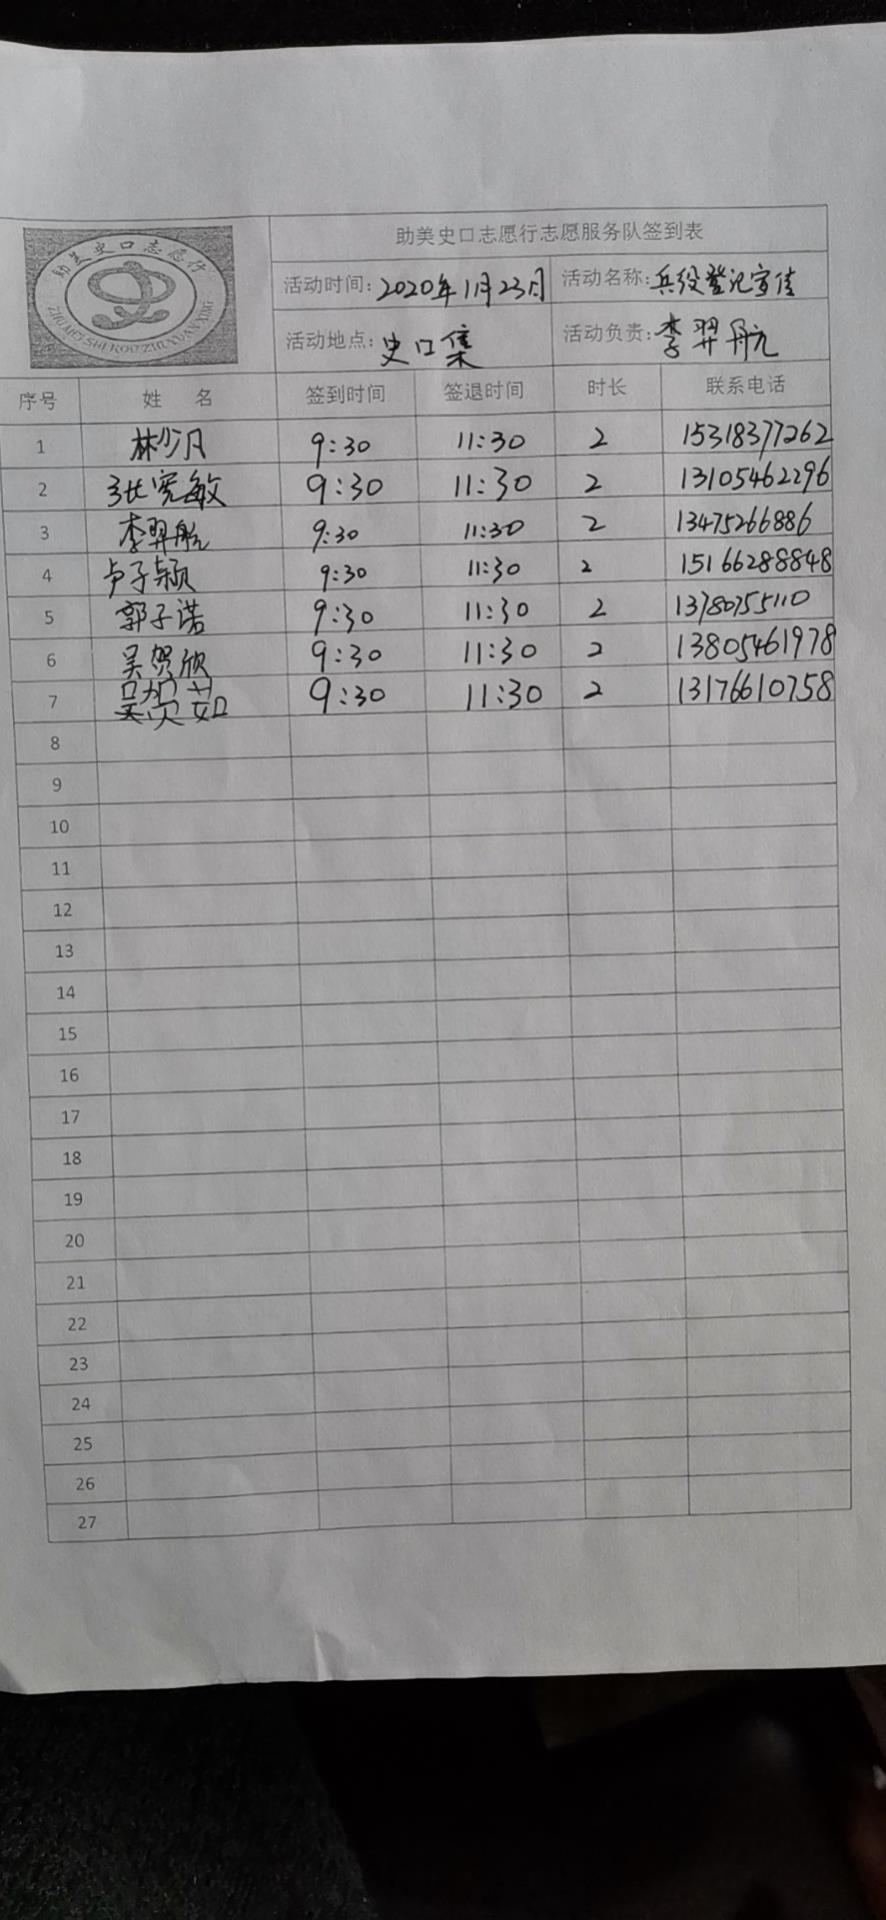 助美史口志愿行
ZHU MEI SHI KOU ZHI YUAN XING
助美史口志愿行志愿服务队签到表
活动时间：2020年11月23日 活动名称：兵役登记宣传
活动地点：史口集 活动负责：李羿航
序号 姓 名 签到时间 签退时间 时长 联系电话
1 林少凡 9:30 11:30 2 15318377262
2 张宪敏 9:30 11:30 2 13105462296
3 李羿航 9:30 11:30 2 13475266886
4 卢子颖 9:30 11:30 2 15166288848
5 郭子诺 9:30 11:30 2 13780755110
6 吴贺欣 9:30 11:30 2 13805461978
7 吴贺茹 9:30 11:30 2 13176610758
8
9
10
11
12
13
14
15
16
17
18
19
20
21
22
23
24
25
26
27